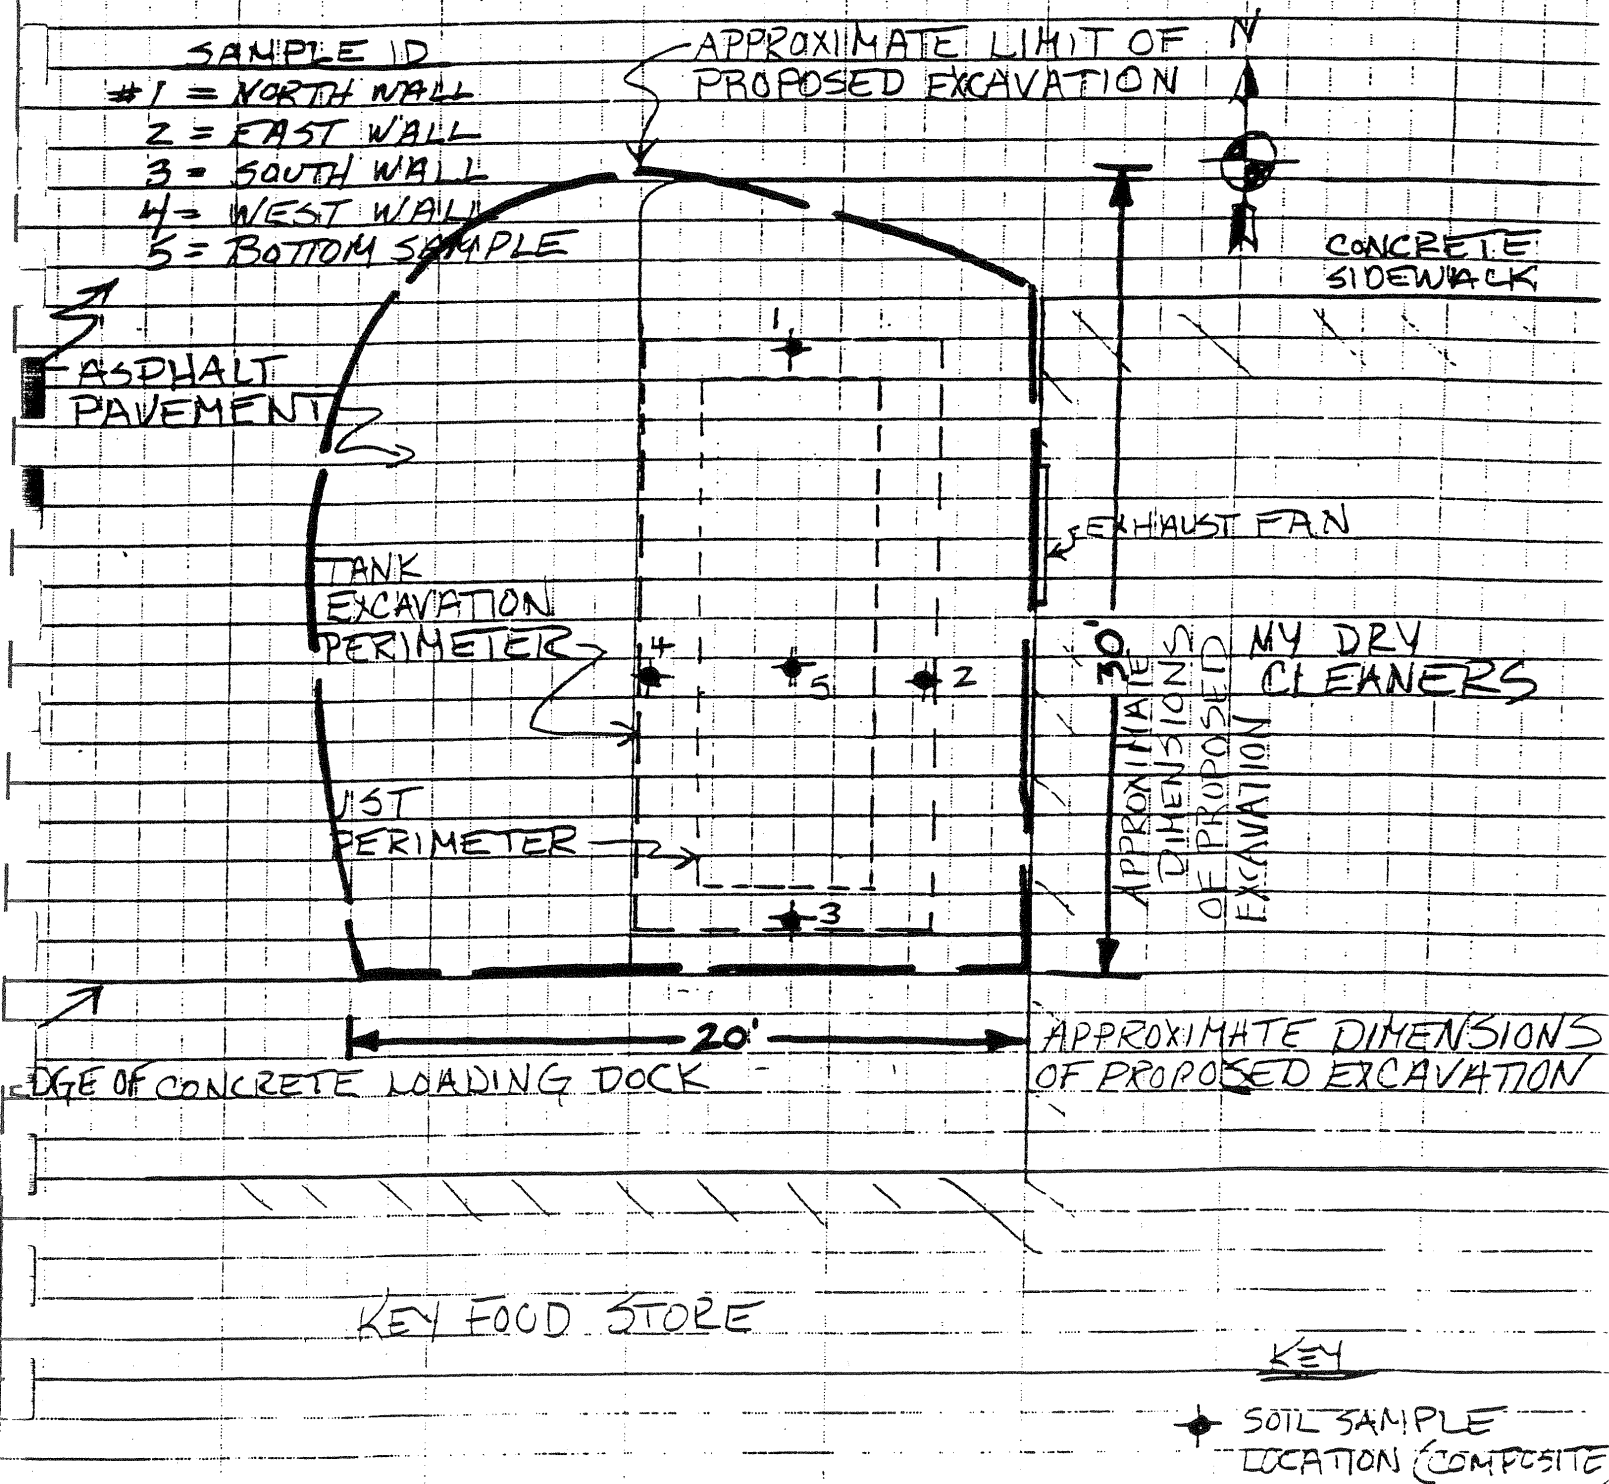 SAMPLE ID
#1 = NORTH WALL
2 = EAST WALL
3 = SOUTH WALL
4 = WEST WALL
5 = BOTTOM SAMPLE
APPROXIMATE LIMIT OF
PROPOSED EXCAVATION
N
CONCRETE
SIDEWACK
ASPHALT
PAVEMENT
1
EXHAUST FAN
TANK
EXCAVATION
PERIMETER
4
5
2
30'
APPROXIMATE
DIMENSIONS
OF PROPOSED
EXCAVATION
NY DRY
CLEANERS
UST
PERIMETER
3
20'
APPROXIMATE DIMENSIONS
OF PROPOSED EXCAVATION
EDGE OF CONCRETE LOADING DOCK
KEY FOOD STORE
KEY
SOIL SAMPLE
LOCATION (COMPOSITE